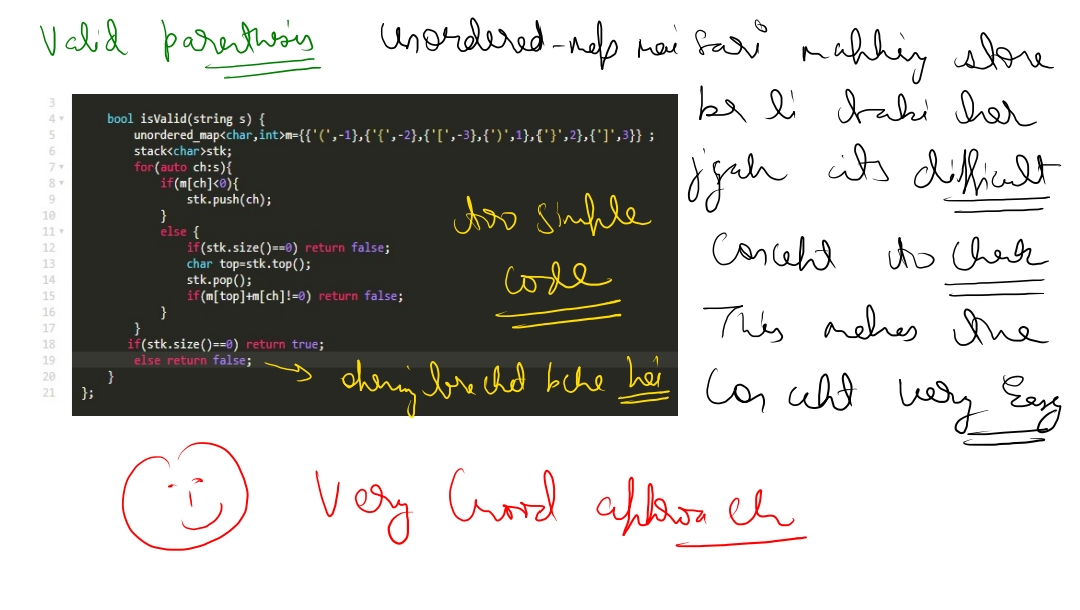 Valid parenthesis
unordered-map mai sari mapping store
kr li taki har
jgah its difficult
Concept to check
This makes the
Concept very Easy
3
4 bool isValid(string s) {
5 unordered_map<char,int>m={{'(',-1},{'{',-2},{'[',-3},{')',1},{'}',2},{']',3}} ;
6 stack<char>stk;
7 for(auto ch:s){
8 if(m[ch]<0){
9 stk.push(ch);
10 }
11 else {
12 if(stk.size()==0) return false;
13 char top=stk.top();
14 stk.pop();
15 if(m[top]+m[ch]!=0) return false;
16 }
17 }
18 if(stk.size()==0) return true;
19 else return false;
20 }
21 };
too simple
code
opening bracket bche hai
Very Good approach